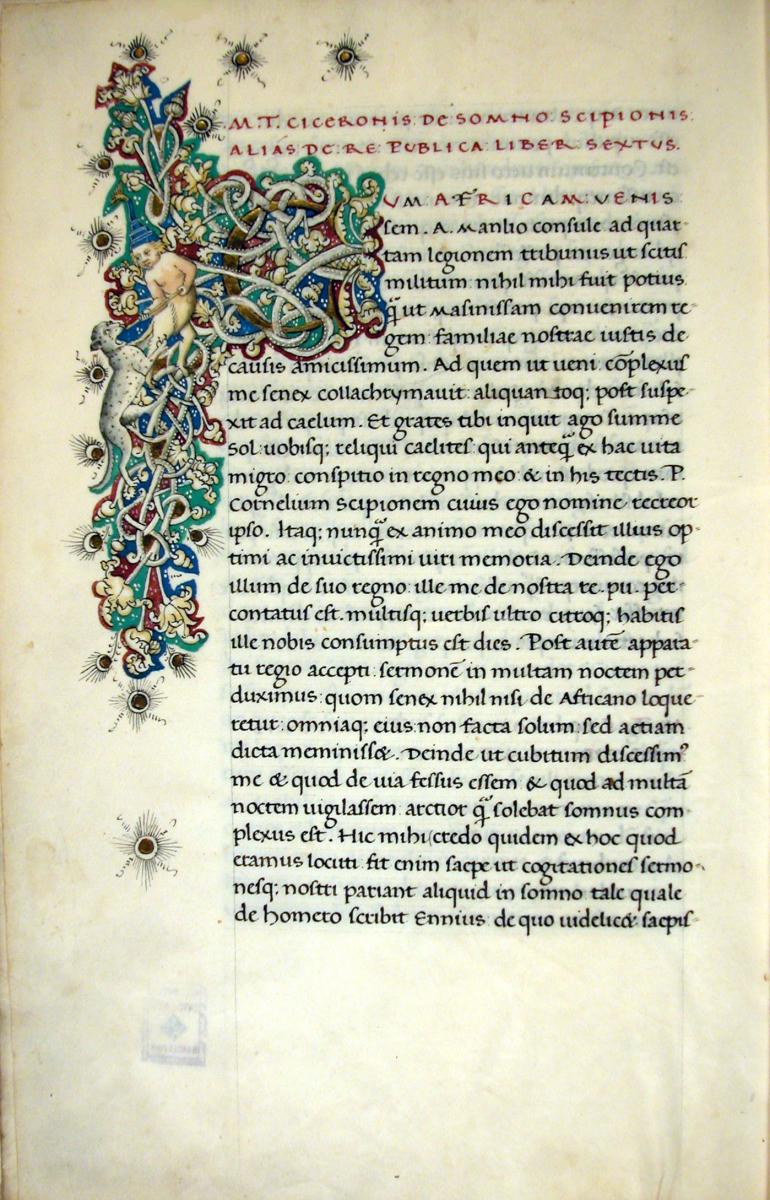 M. T. CICERONIS DE SOMNO SCIPIONIS
ALIAS DE RE PUBLICA LIBER SEXTUS.
CUM AFRICAM VENIS
sem. A. Manlio consule ad quar-
tam legionem tribunus ut scitis
militum nihil mihi fuit potius
q̃ ut Masinissam convenirem re-
gem familiae nostrae iustis de
causis amicissimum. Ad quem ut veni cõplexus
me senex collachrymauit aliquantoq; post suspe-
xit ad caelum. Et grates tibi inquit ago summe
sol uobisq; reliqui caelites qui anteq̃ ex hac uita
migro conspitio in regno meo & in his tectis. P.
Cornelium Scipionem cuius ego nomine recreor
ipso. Itaq; nunq̃ ex animo meo discessit illius op-
timi ac invictissimi uiri memoria. Deinde ego
illum de suo regno ille me de nostra re. pu. per-
contatus est. multisq; uerbis ultro citroq; habitis
ille nobis consumptus est dies. Post autẽ appara-
tu regio accepti sermonẽ in multam noctem per-
duximus quom senex nihil nisi de Africano loque-
retur omniaq; eius non facta solum sed aetiam
dicta meminiss&. Deinde ut cubitum discessim⁹
me & quod de uia fessus essem & quod ad multã
noctem uigilassem arctior q̃ solebat somnus com-
plexus est. Hic mihi credo quidem ex hoc quod
eramus locuti fit enim saepe ut cogitationes sermo-
nesq; nostri pariant aliquid in somno tale quale
de homero scribit Ennius de quo uidelic& saepis-